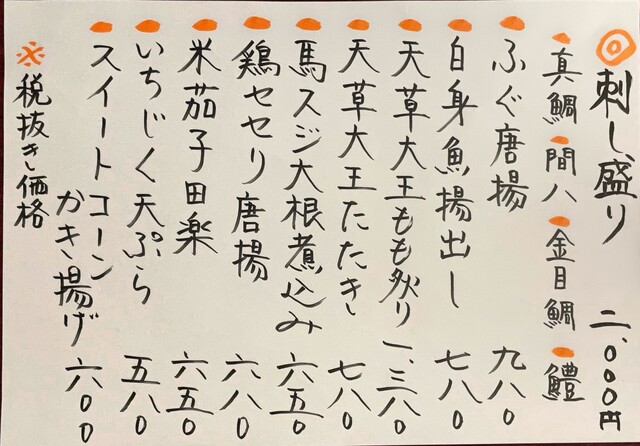 ◎刺し盛り 二,000円
・真鯛・間八・金目鯛・鱧
・ふぐ唐揚 九八0
・白身魚揚出し 七八0
・天草大王もも炙り 一,三八0
・天草大王たたき 七八0
・馬スジ大根煮込み 六五0
・鶏セセリ唐揚 六八0
・米茄子田楽 六五0
・いちじく天ぷら 五八0
・スイートコーン
かき揚げ 六00
※税抜き価格